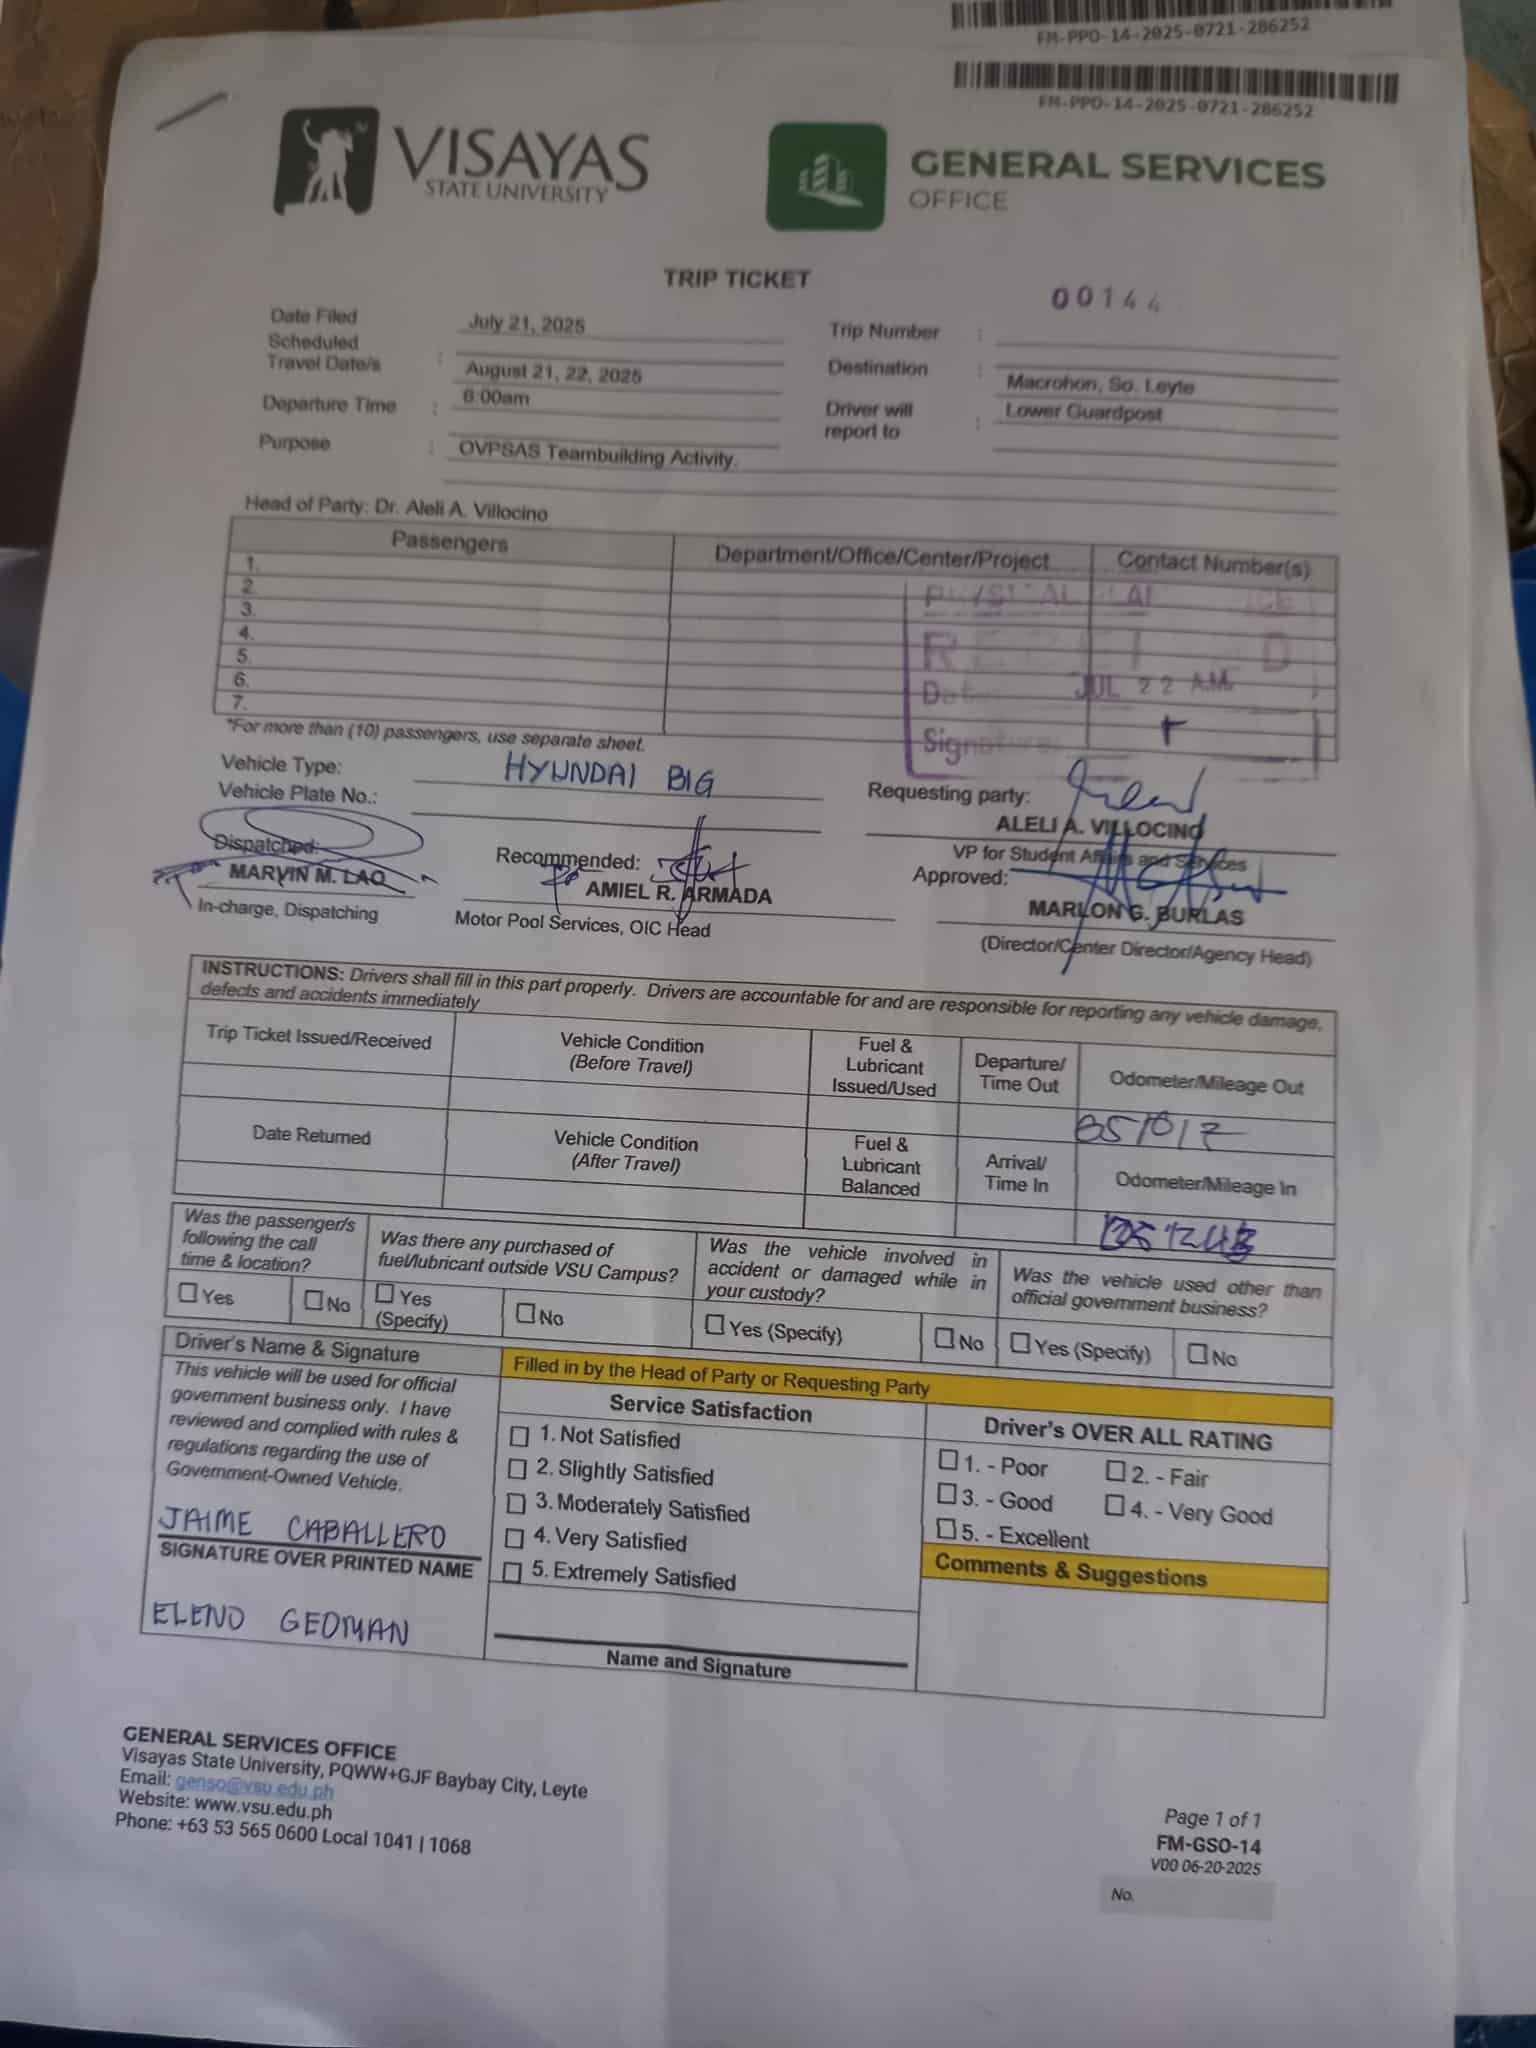 FM-PPO-14-2025-0721-286252
FM-PPO-14-2025-0721-286252
VISAYAS
STATE UNIVERSITY
GENERAL SERVICES
OFFICE
TRIP TICKET
00144
Date Filed July 21, 2025
Trip Number :
Scheduled Travel Date/s : August 21, 22, 2025
Destination : Macrohon, So. Leyte
Departure Time : 6:00am
Driver will report to : Lower Guardpost
Purpose : OVPSAS Teambuilding Activity.
Head of Party: Dr. Aleli A. Villocino
Passengers Department/Office/Center/Project Contact Number(s)
1.
2.
3.
4.
5.
6.
7.
PHYSICAL
JUL 22 A.M.
Signature:
*For more than (10) passengers, use separate sheet.
Vehicle Type: HYUNDAI BIG
Vehicle Plate No.:
Requesting party:
ALELI A. VILLOCINO
VP for Student Affairs and Services
Dispatched:
MARVIN M. LAO
In-charge, Dispatching
Recommended:
AMIEL R. ARMADA
Motor Pool Services, OIC Head
Approved:
MARLON G. BURLAS
(Director/Center Director/Agency Head)
INSTRUCTIONS: Drivers shall fill in this part properly. Drivers are accountable for and are responsible for reporting any vehicle damage,
defects and accidents immediately
Trip Ticket Issued/Received
Vehicle Condition
(Before Travel)
Fuel &
Lubricant
Issued/Used
Departure/
Time Out
Odometer/Mileage Out
Date Returned
Vehicle Condition
(After Travel)
Fuel &
Lubricant
Balanced
Arrival/
Time In
Odometer/Mileage In
Was the passenger/s
following the call
time & location?
Was there any purchased of
fuel/lubricant outside VSU Campus?
Was the vehicle involved in
accident or damaged while in
your custody?
Was the vehicle used other than
official government business?
Yes
No
Yes
(Specify)
No
Yes (Specify)
No
Yes (Specify)
No
Driver's Name & Signature
This vehicle will be used for official
government business only. I have
reviewed and complied with rules &
regulations regarding the use of
Government-Owned Vehicle.
JAIME CABALLERO
SIGNATURE OVER PRINTED NAME
ELENO GEOMAN
Filled in by the Head of Party or Requesting Party
Service Satisfaction
1. Not Satisfied
2. Slightly Satisfied
3. Moderately Satisfied
4. Very Satisfied
5. Extremely Satisfied
Name and Signature
Driver's OVER ALL RATING
1. - Poor 2. - Fair
3. - Good 4. - Very Good
5. - Excellent
Comments & Suggestions
GENERAL SERVICES OFFICE
Visayas State University, PQWW+GJF Baybay City, Leyte
Email: genso@vsu.edu.ph
Website: www.vsu.edu.ph
Phone: +63 53 565 0600 Local 1041 | 1068
Page 1 of 1
FM-GSO-14
V00 06-20-2025
No.